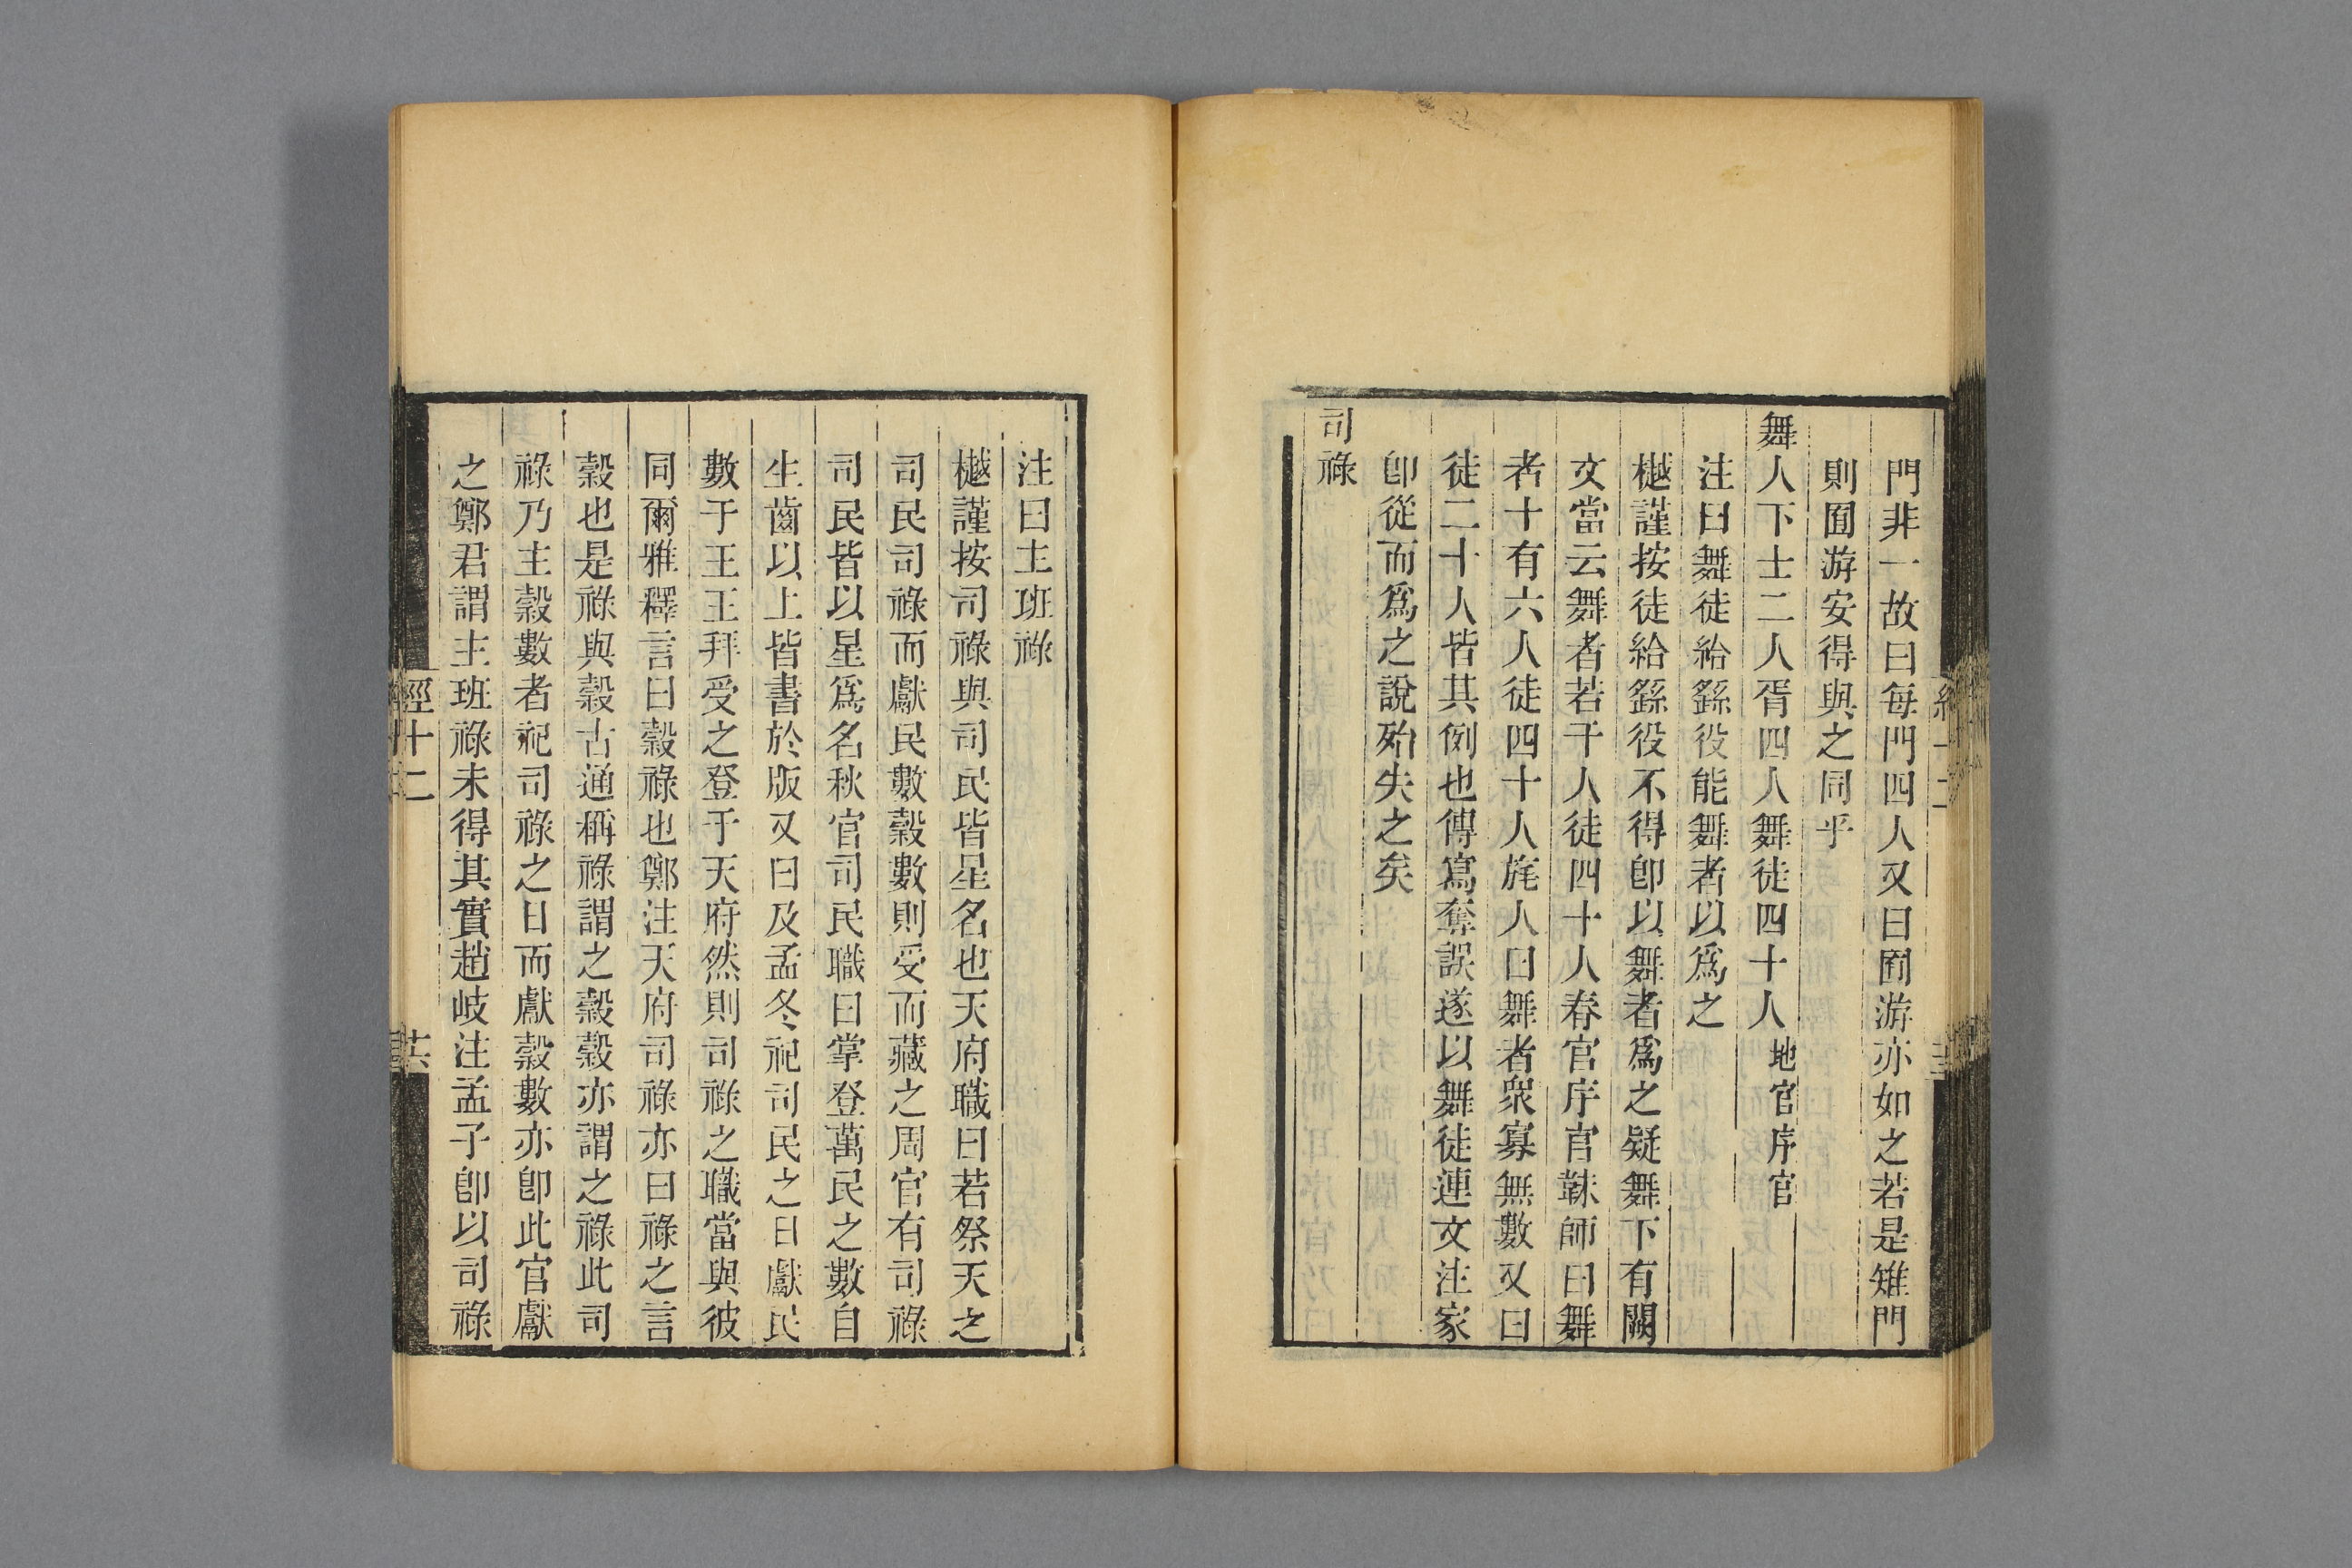 門非一故曰每門四人又曰囿游亦如之若是雉門
則囿游安得與之同乎
舞人下士二人胥四人舞徒四十人地官序官
注曰舞徒給繇役能舞者以爲之
樾謹按徒給繇役不得卽以舞者爲之疑舞下有闕
文當云舞者若干人徒四十人春官序官韎師曰舞
者十有六人徒四十人旄人曰舞者衆寡無數又曰
徒二十人皆其例也傳寫奪誤遂以舞徒連文注家
卽從而爲之說殆失之矣
司祿
注曰主班祿
樾謹按司祿與司民皆星名也天府職曰若祭天之
司民司祿而獻民數穀數則受而藏之周官有司祿
司民皆以星爲名秋官司民職曰掌登萬民之數自
生齒以上皆書於版又曰及孟冬祀司民之日獻民
數于王王拜受之登于天府然則司祿之職當與彼
同爾雅釋言曰穀祿也鄭注天府司祿亦曰祿之言
穀也是祿與穀古通稱祿謂之穀穀亦謂之祿此司
祿乃主穀數者祀司祿之日而獻穀數亦卽此官獻
之鄭君謂主班祿未得其實趙岐注孟子卽以司祿
經十二